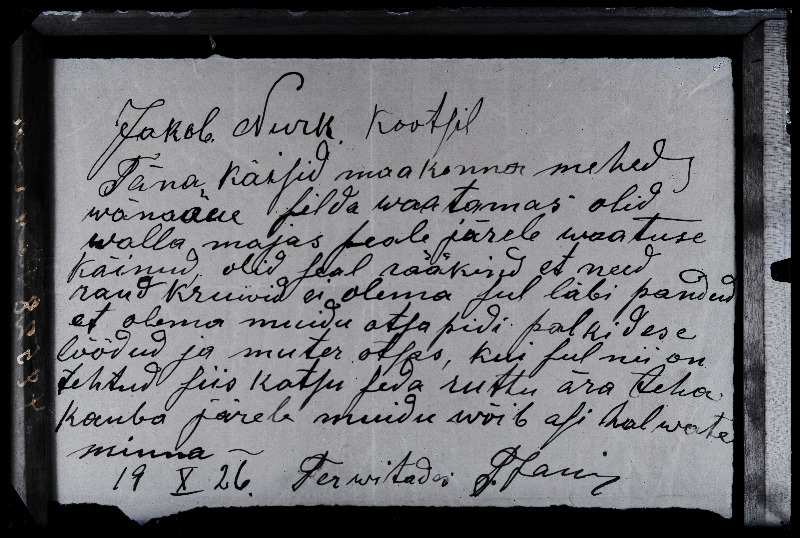 Jakob. Nurk. Kootsil
Täna, käisid maakonna mehed,
wänaäue silda waatamas olid
walla majas peale järele waatuse
käinud, olid seal rääkind et need
raud kruwid ei olema sul läbi pandud
et olema muidu otsapidi palkidese
löödud ja muter otsas, kui sul nii on
tehtud siis katsu seda ruttu ära teha
kauba järele muidu wõib asi halwate
minna —
19 X 26. Terwitades